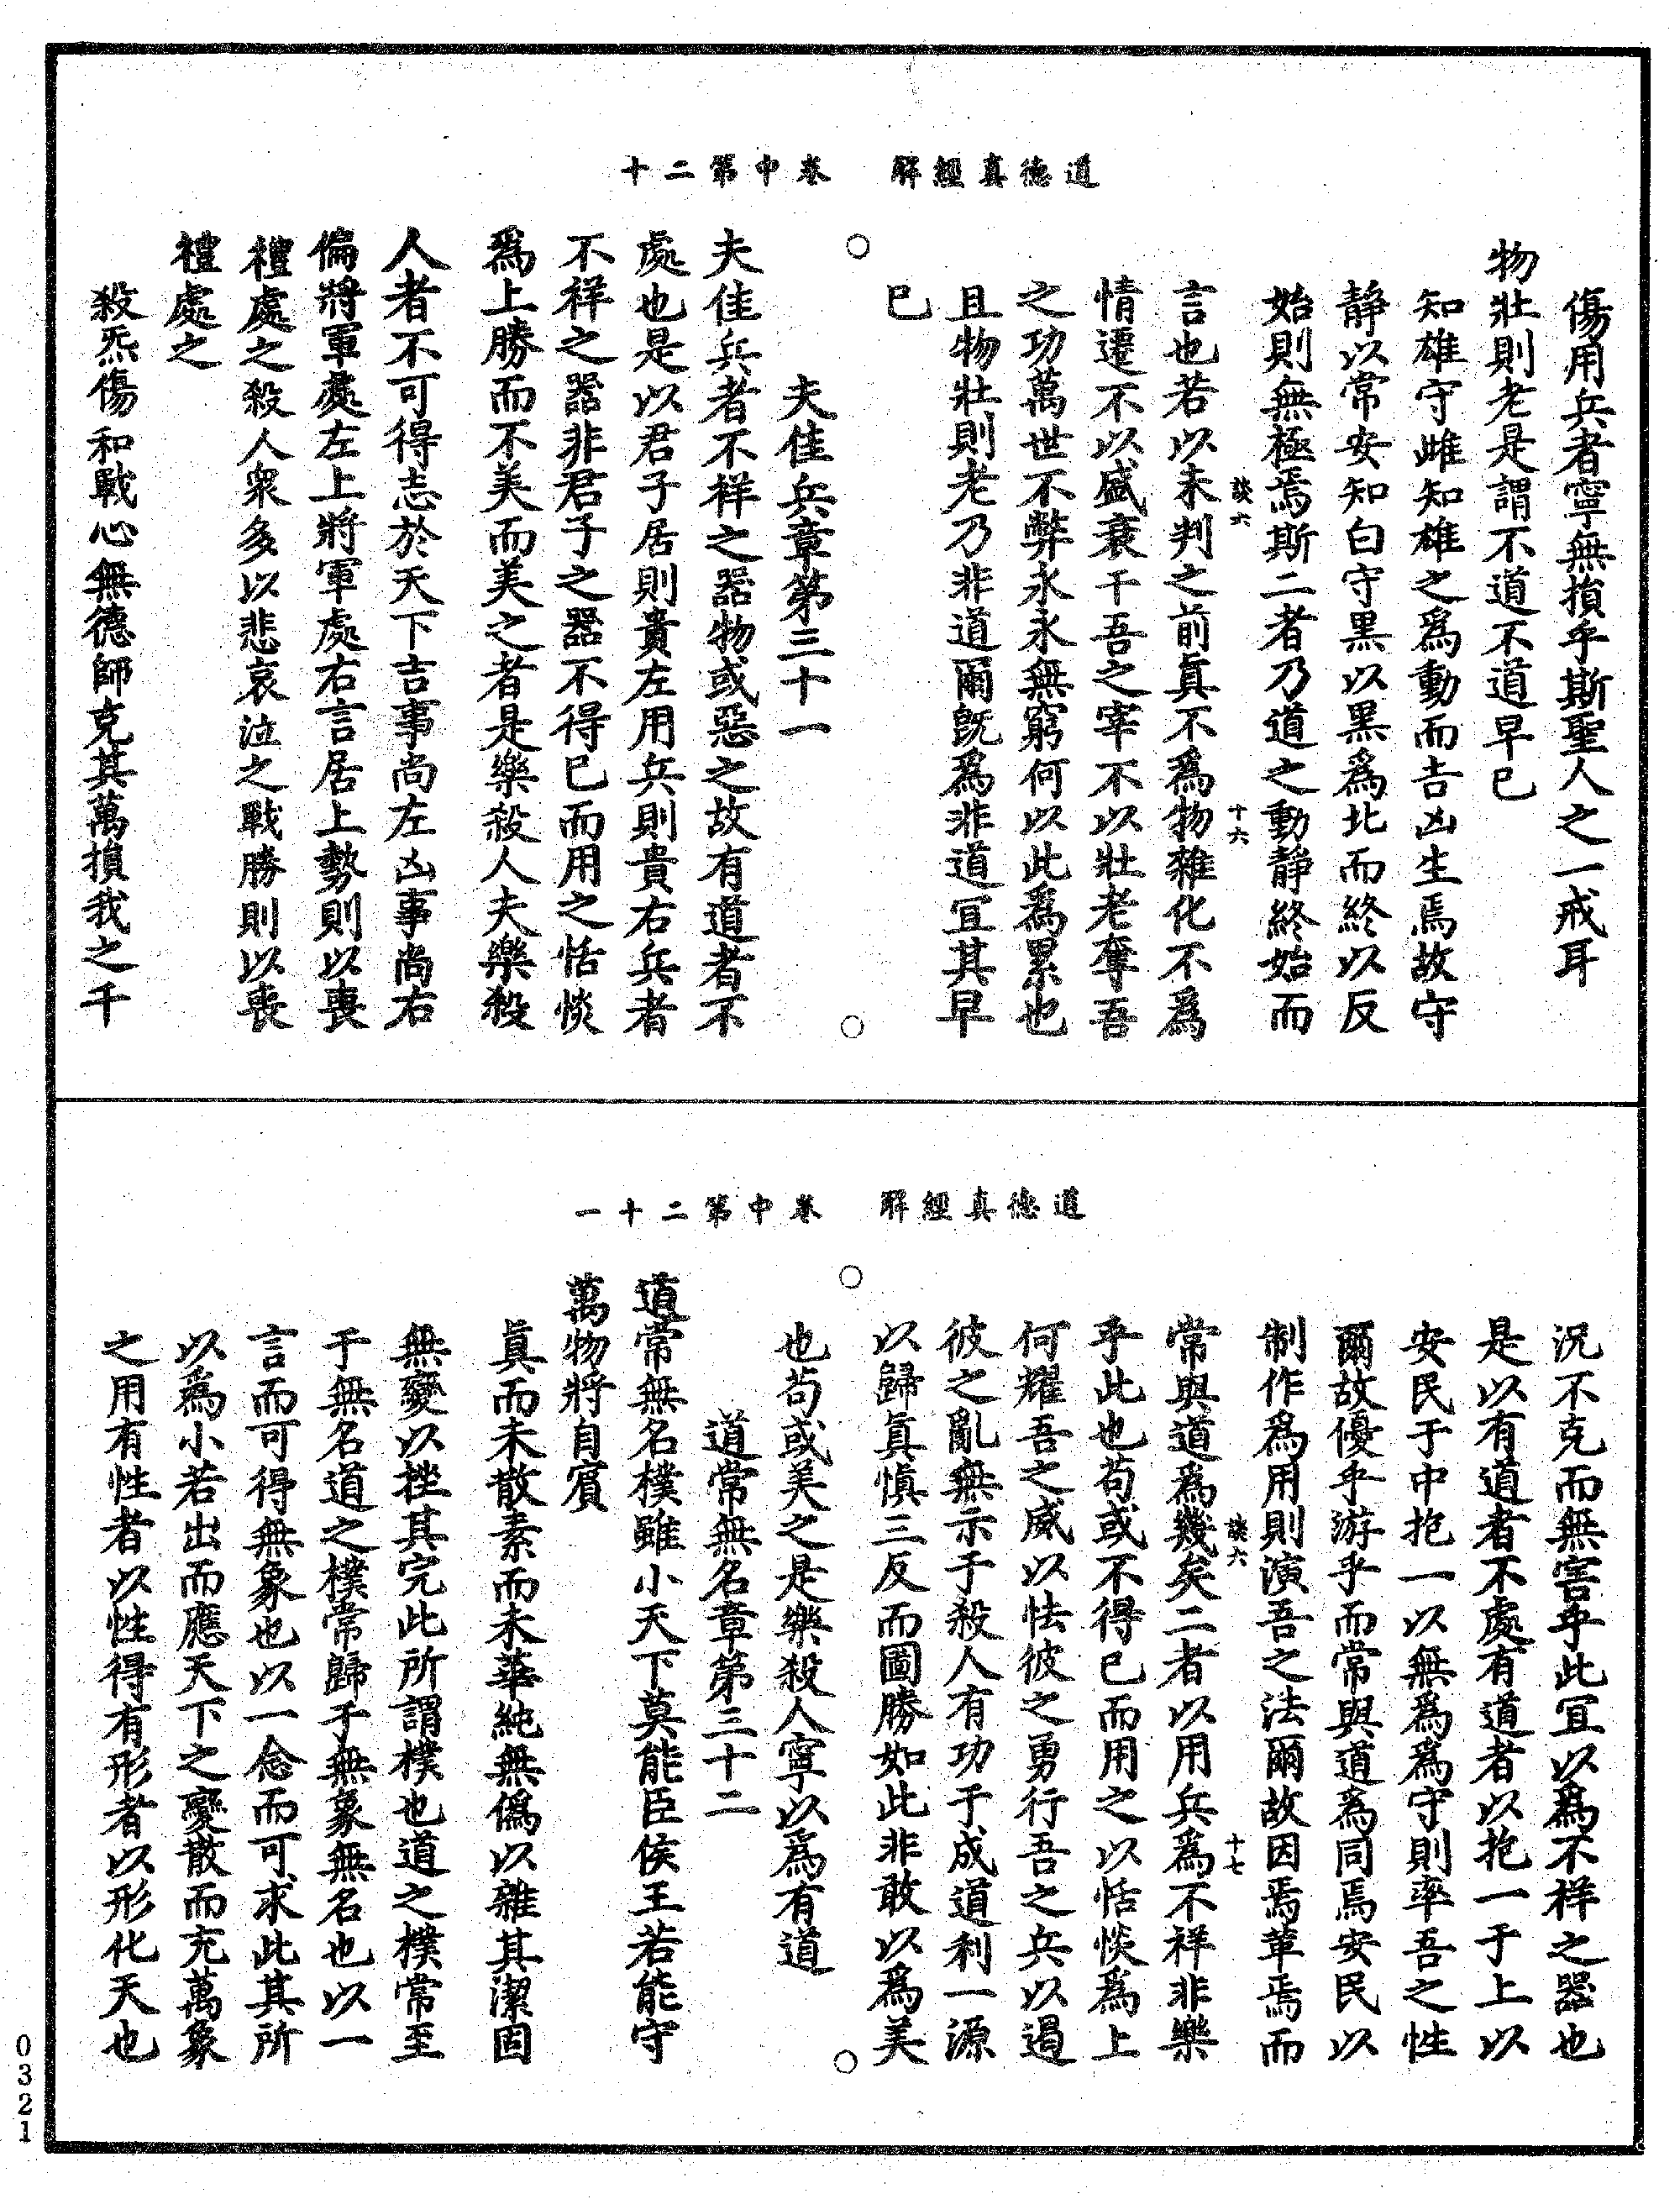 道德真經解　卷中第二十
傷用兵者寧無損乎斯聖人之一戒耳
物壯則老是謂不道不道早已
知雄守雌知雄之爲動而吉凶生焉故守
靜以常安知白守黑以黑爲北而終以反
始則無極焉斯二者乃道之動靜終始而
談六　十六
言也若以未判之前眞不爲物雜化不爲
情遷不以盛衰干吾之宰不以壯老奪吾
之功萬世不弊永永無窮何以此爲累也
且物壯則老乃非道爾旣爲非道冝其早
已
夫佳兵章第三十一
夫佳兵者不祥之器物或惡之故有道者不
處也是以君子居則貴左用兵則貴右兵者
不祥之器非君子之器不得已而用之恬惔
爲上勝而不美而美之者是樂殺人夫樂殺
人者不可得志於天下吉事尚左凶事尚右
偏將軍處左上將軍處右言居上勢則以喪
禮處之殺人衆多以悲哀泣之戰勝則以喪
禮處之
殺炁傷和戰心無德師克其萬損我之千
道德真經解　卷中第二十一
況不克而無害乎此冝以爲不祥之器也
是以有道者不處有道者以抱一于上以
安民于中抱一以無爲爲守則率吾之性
爾故優乎游乎而常與道爲同焉安民以
制作爲用則演吾之法爾故因焉革焉而
談六　十七
常與道爲幾矣二者以用兵爲不祥非樂
乎此也苟或不得已而用之以恬惔爲上
何耀吾之威以怯彼之勇行吾之兵以遏
彼之亂無示于殺人有功于成道利一源
以歸眞愼三反而圖勝如此非敢以爲美
也苟或美之是樂殺人寧以爲有道
道常無名章第三十二
道常無名樸雖小天下莫能臣侯王若能守
萬物將自賓
眞而未散素而未華純無僞以雜其潔固
無變以挫其完此所謂樸也道之樸常至
于無名道之樸常歸于無象無名也以一
言而可得無象也以一念而可求此其所
以爲小若出而應天下之變散而充萬象
之用有性者以性得有形者以形化天也
0321